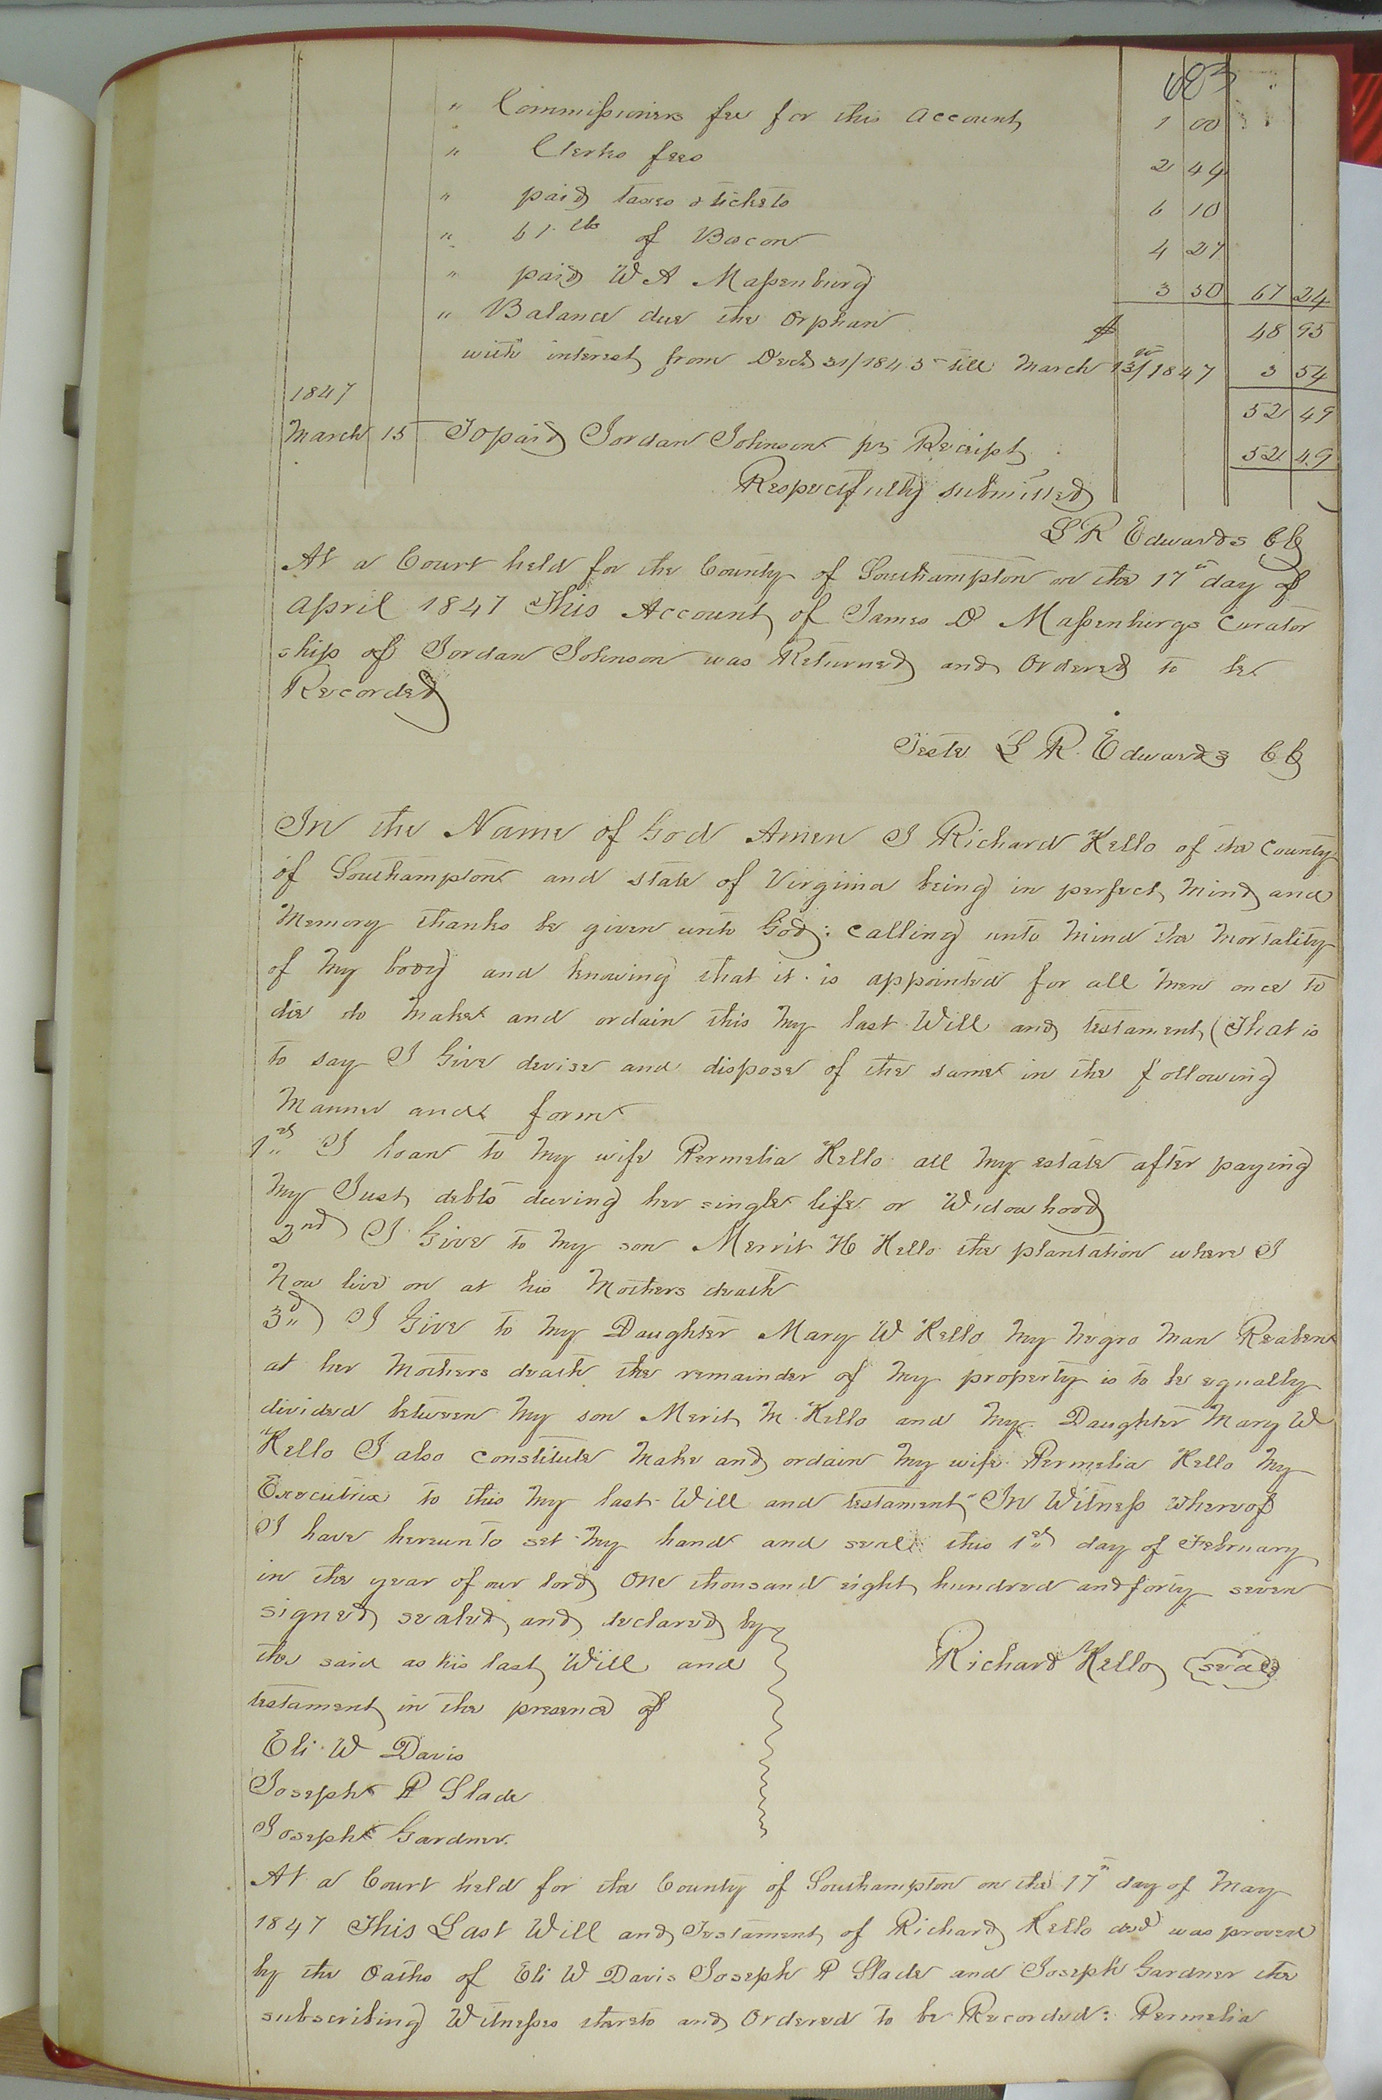 683
" Commissioners fee for this account 1 00
" Clerks fees 2 44
" paid taxes & tickets 6 10
" 61 lbs of Bacon 4 27
" paid W A Massenburg 3 50 67 24
" Balance due the Orphan $ 48 95
with interest from Decr 31/1845 till March 15th/1847 3 54
1847 52 49
March 15 To paid Jordan Johnson pr Receipt 52 49
Respectfully submitted
L R Edwards CC
At a Court held for the County of Southampton on the 17th day of
April 1847 This Account of James D Massenburgs Curator
ship of Jordan Johnson was Returned and Ordered to be
Recorded
Teste L R. Edwards CC
In the Name of God Amen I Richard Kello of the County
of Southampton and state of Virginia being in perfect mind and
Memory thanks be given unto God: calling unto mind the mortality
of my body and knowing that it is appointed for all men once to
die do make and ordain this my last Will and testament (That is
to say I Give devise and dispose of the same in the following
Manner and form
1st I loan to my wife Permelia Kello all my estate after paying
my Just debts during her single life or Widowhood
2nd I Give to my son Merrit H Kello the plantation where I
now live on at his Mothers death
3d I Give to my Daughter Mary W Kello my negro man Reaben
at her Mothers death the remainder of my property is to be equally
divided between my son Merit M. Kello and my Daughter Mary W
Kello I also constitute make and ordain my wife Permelia Kello my
Executrix to this my last Will and testament In Witness whereof
I have hereunto set my hand and seal this 1st day of February
in the year of our lord One thousand eight hundred and forty seven
signed sealed and declared by
the said as his last Will and Richard Kello seal
testament in the presence of
Eli W Davis
Joseph P Slade
Joseph Gardner.
At a Court held for the County of Southampton on the 17th day of May
1847 This Last Will and Testament of Richard Kello decd was proved
by the Oaths of Eli W Davis Joseph P Slade and Joseph Gardner the
subscribing Witnesses thereto and Ordered to be Recorded: Permelia